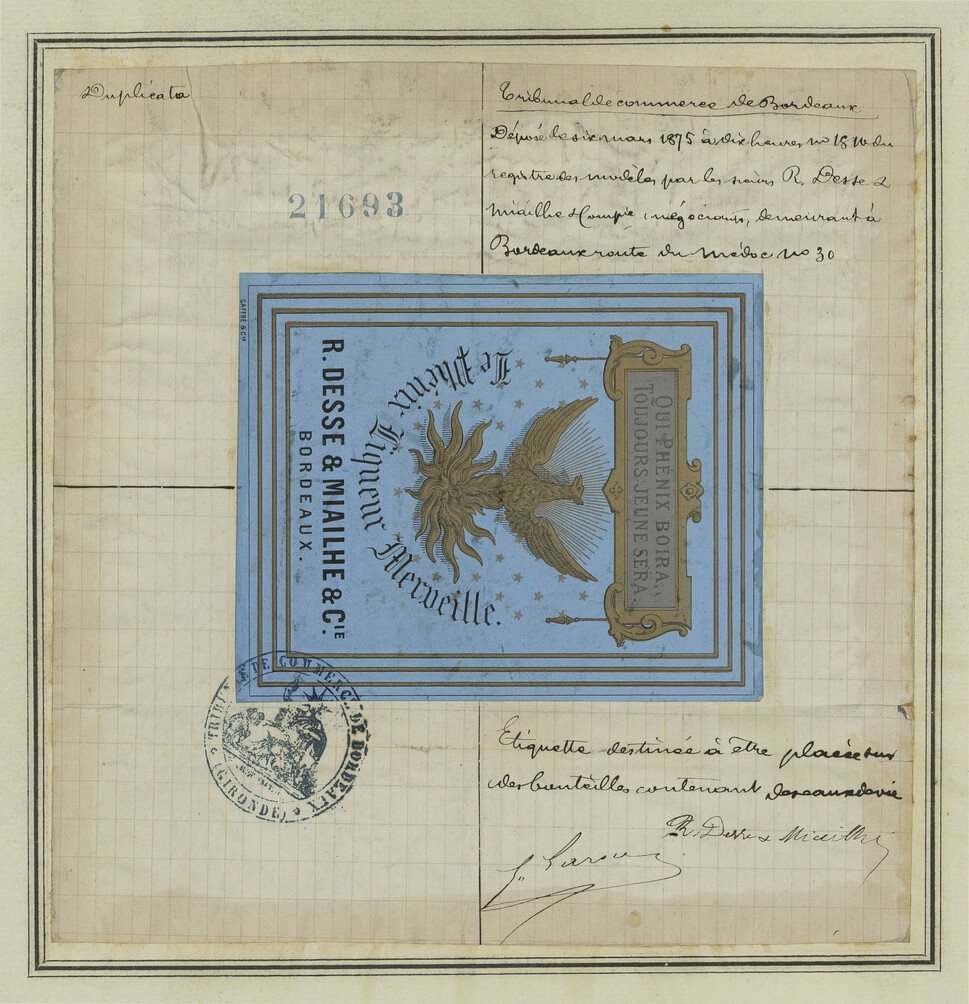 Duplicata
21693
Tribunal de commerce de Bordeaux
Déposé le six mars 1875 à dix heures no 1810 du
registre des modèles par les sieurs R. Desse &
Miailhe & Compie négociants, demeurant à
Bordeaux route du Médoc no 30
GAFFRÉ & CIE
QUI PHÉNIX BOIRA,
TOUJOURS JEUNE SERA.
Le Phénix Liqueur Merveille.
R. DESSE & MIAILHE & CIE.
BORDEAUX.
TRIBUNAL DE COMMERCE DE BORDEAUX
(GIRONDE)
Etiquette destinée à être placée sur
des bouteilles contenant des eaux de vie
R. Desse & Miailhe